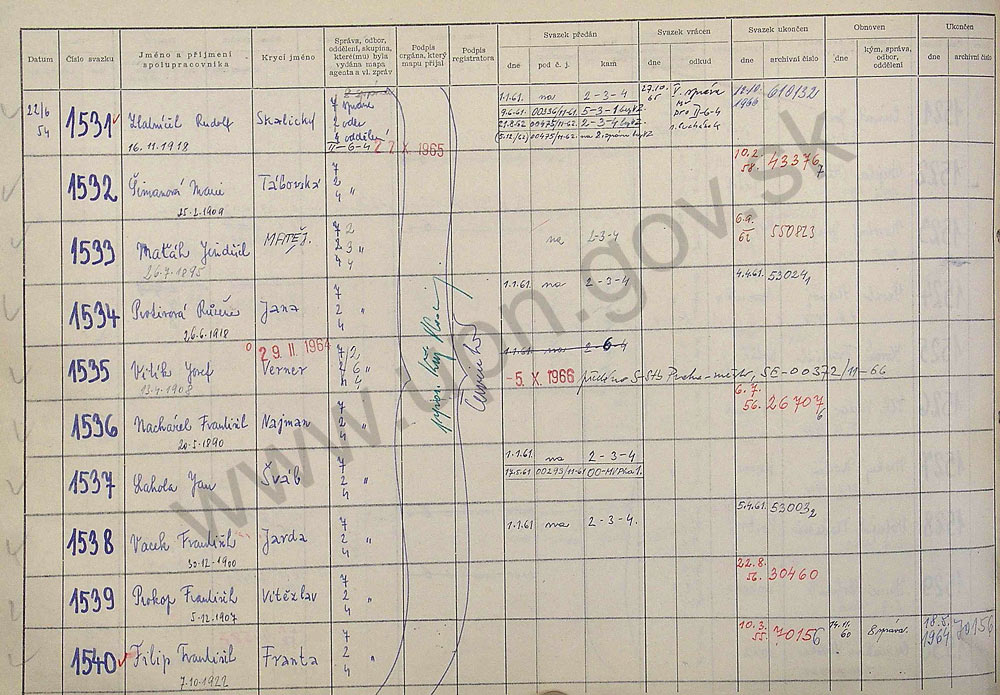 Datum
Číslo svazku
Jméno a příjmení
spolupracovníka
Krycí jméno
Správa, odbor,
oddělení, skupina,
které(mu) byla
vydána mapa
agenta a vl. zpráv
Podpis
orgána, který
mapu přijal
Podpis
registratora
Svazek předán
dne
pod č. j.
kam
Svazek vrácen
dne
odkud
Svazek ukončen
dne
archivní číslo
Obnoven
dne
kým, správa,
odbor,
oddělení
Ukončen
dne
archivní číslo
22/6
54
1531
Rudolf
16.11.1918
Skalický
7 správa
2 odbor
4 oddělení
II-6-4
X. 1965
1.1.61. na 2-3-4
9.6.61. 00336/11-61.
21.8.62 00475/11-62.
00475/11-62.
27.10.
65
V. správa
pro II-6-4
1966
1532
Šimanová Marie
25.2.1909
Táborská
7
2
4 "
10.2.
58. 43376
7
1533
Maťáh Jindřich
26.7.1895
MATĚJ.
7 2
2 3 "
4 4
na 2-3-4
6.9.
62 550823
1534
26.6.1918
Jana
7
2 "
4
1.1.61. na 2-3-4
4.4.61. 53029
1
1535
Vitík Josef
13.4.1908
29. II. 1964
Verner
1.1.61. na 2-6-4
-5. X. 1966
SE-00372/11-66
1536
Nachážel František
20.5.1890
Najman
7
2 "
4
6.7.
56. 26707
6
1537
Lahola Jan
Šváb
7
2 "
4
1.1.61 na 2-3-4
17.5.61 00293/11-61
1538
Vacek František
30.12.1900
Jarda
7
2 "
4
1.1.61 na 2-3-4.
5.4.61. 53003
2
1539
Prokop František
5.12.1907
Vítězslav
7
2 "
4
22.8.
56. 30460
1540
Filip František
7.10.1922
Franta
7
2 "
4
10.3.
55. 70156
14.11.
60
8 správa.
18.5.
1964
70156
www.upn.gov.sk